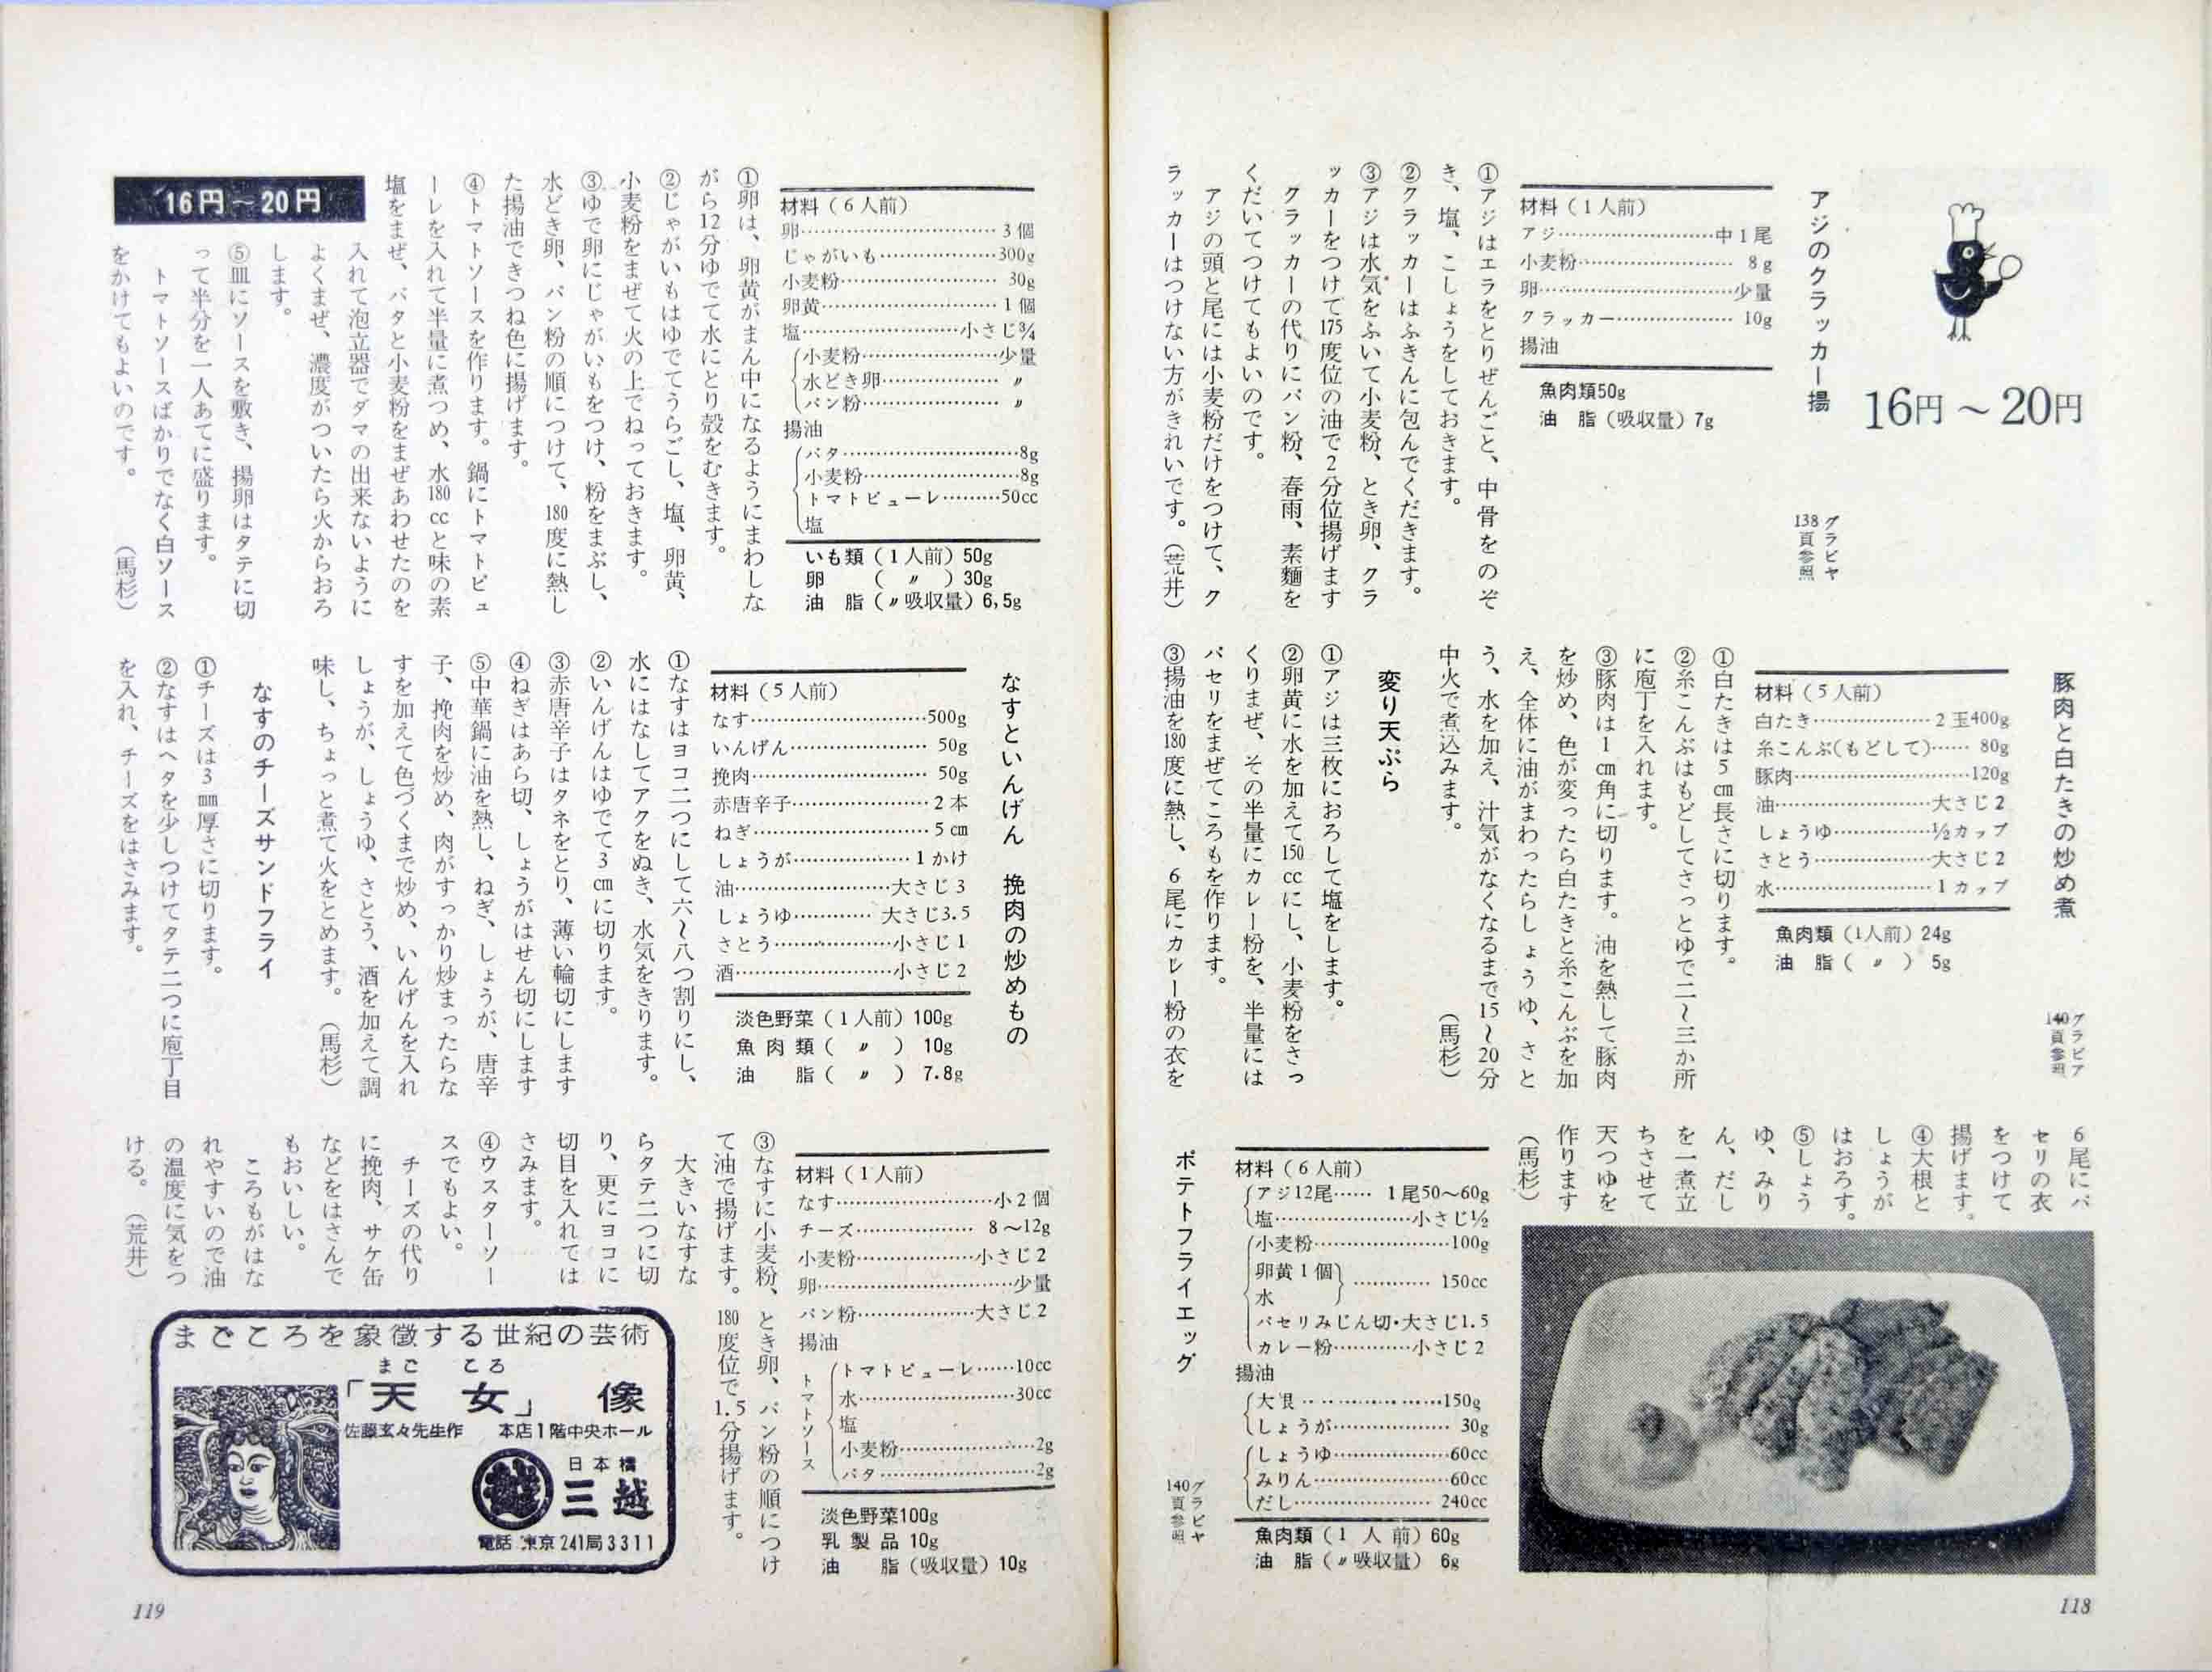 16円～20円
アジのクラッカー揚
グラビヤ
138頁参照
材料（1人前）
アジ……………………中1尾
小麦粉…………………… 8g
卵…………………………少量
クラッカー……………… 10g
揚油
魚肉類50g
油　脂（吸収量）7g
①アジはエラをとりぜんごと、中骨をのぞ
き、塩、こしょうをしておきます。
②クラッカーはふきんに包んでくだきます。
③アジは水気をふいて小麦粉、とき卵、クラ
ッカーをつけて175度位の油で2分位揚げます
クラッカーの代りにパン粉、春雨、素麺を
くだいてつけてもよいのです。
アジの頭と尾には小麦粉だけをつけて、ク
ラッカーはつけない方がきれいです。（荒井）
豚肉と白たきの炒め煮
グラビア
140頁参照
材料（5人前）
白たき………………2玉400g
糸こんぶ(もどして)…… 80g
豚肉………………………120g
油……………………大さじ2
しょうゆ……………½カップ
さとう………………大さじ2
水……………………1カップ
魚肉類（1人前）24g
油　脂（　〃　）　5g
①白たきは5cm長さに切ります。
②糸こんぶはもどしてさっとゆで二～三か所
に庖丁を入れます。
③豚肉は1cm角に切ります。油を熱して豚肉
を炒め、色が変ったら白たきと糸こんぶを加
え、全体に油がまわったらしょうゆ、さと
う、水を加え、汁気がなくなるまで15～20分
中火で煮込みます。（馬杉）
変り天ぷら
①アジは三枚におろして塩をします。
②卵黄に水を加えて150ccにし、小麦粉をさっ
くりまぜ、その半量にカレー粉を、半量には
パセリをまぜてころもを作ります。
③揚油を180度に熱し、6尾にカレー粉の衣を
6尾にパ
セリの衣
をつけて
揚げます。
④大根と
しょうが
はおろす。
⑤しょう
ゆ、みり
ん、だし
を一煮立
ちさせて
天つゆを
作ります
（馬杉）
材料（6人前）
アジ12尾…… 1尾50～60g
塩…………………小さじ½
小麦粉…………………100g
卵黄1個
水
………… 150cc
パセリみじん切・大さじ1.5
カレー粉…………小さじ2
揚油
大根……………………150g
しょうが……………… 30g
しょうゆ………………60cc
みりん…………………60cc
だし………………… 240cc
魚肉類（1人前）60g
油　脂（〃吸収量）6g
ポテトフライエッグ
グラビヤ
140頁参照
118
材料（6人前）
卵………………………… 3個
じゃがいも………………300g
小麦粉…………………… 30g
卵黄……………………… 1個
塩……………………小さじ¾
小麦粉…………………少量
水どき卵……………… 〃
パン粉………………… 〃
揚油
バタ………………………8g
小麦粉……………………8g
トマトピューレ………50cc
塩
いも類（1人前）50g
卵　　（　〃　）30g
油　脂（〃吸収量）6,5g
①卵は、卵黄がまん中になるようにまわしな
がら12分ゆでて水にとり殻をむきます。
②じゃがいもはゆでてうらごし、塩、卵黄、
小麦粉をまぜて火の上でねっておきます。
③ゆで卵にじゃがいもをつけ、粉をまぶし、
水どき卵、パン粉の順につけて、180度に熱し
た揚油できつね色に揚げます。
④トマトソースを作ります。鍋にトマトピュ
ーレを入れて半量に煮つめ、水180ccと味の素
塩をまぜ、バタと小麦粉をまぜあわせたのを
入れて泡立器でダマの出来ないように
よくまぜ、濃度がついたら火からおろ
します。
⑤皿にソースを敷き、揚卵はタテに切
って半分を一人あてに盛ります。
トマトソースばかりでなく白ソース
をかけてもよいのです。（馬杉）
16円～20円
なすといんげん　挽肉の炒めもの
材料（5人前）
なす………………………500g
いんげん………………… 50g
挽肉……………………… 50g
赤唐辛子…………………2本
ねぎ……………………… 5cm
しょうが………………1かけ
油……………………大さじ3
しょうゆ………… 大さじ3.5
さとう………………小さじ1
酒……………………小さじ2
淡色野菜（1人前）100g
魚肉類（　〃　）10g
油　脂（　〃　）7.8g
①なすはヨコ二つにして六～八つ割りにし、
水にはなしてアクをぬき、水気をきります。
②いんげんはゆでて3cmに切ります。
③赤唐辛子はタネをとり、薄い輪切にします
④ねぎはあら切、しょうがはせん切にします
⑤中華鍋に油を熱し、ねぎ、しょうが、唐辛
子、挽肉を炒め、肉がすっかり炒まったらな
すを加えて色づくまで炒め、いんげんを入れ
しょうが、しょうゆ、さとう、酒を加えて調
味し、ちょっと煮て火をとめます。（馬杉）
なすのチーズサンドフライ
①チーズは3mm厚さに切ります。
②なすはヘタを少しつけてタテ二つに庖丁目
を入れ、チーズをはさみます。
材料（1人前）
なす……………………小2個
チーズ……………… 8～12g
小麦粉………………小さじ2
卵…………………………少量
パン粉………………大さじ2
揚油
トマトソース
トマトピューレ……10cc
水……………………30cc
塩
小麦粉…………………2g
バタ……………………2g
淡色野菜100g
乳製品 10g
油　脂（吸収量）10g
③なすに小麦粉、とき卵、パン粉の順につけ
て油で揚げます。180度位で1.5分揚げます。
大きいなすな
らタテ二つに切
り、更にヨコに
切目を入れては
さみます。
④ウスターソー
スでもよい。
チーズの代り
に挽肉、サケ缶
などをはさんで
もおいしい。
ころもがはな
れやすいので油
の温度に気をつ
ける。（荒井）
まごころを象徴する世紀の芸術
まご　ころ
「天女」像
佐藤玄々先生作　本店1階中央ホール
日本橋
三越
電話 東京241局3311
119